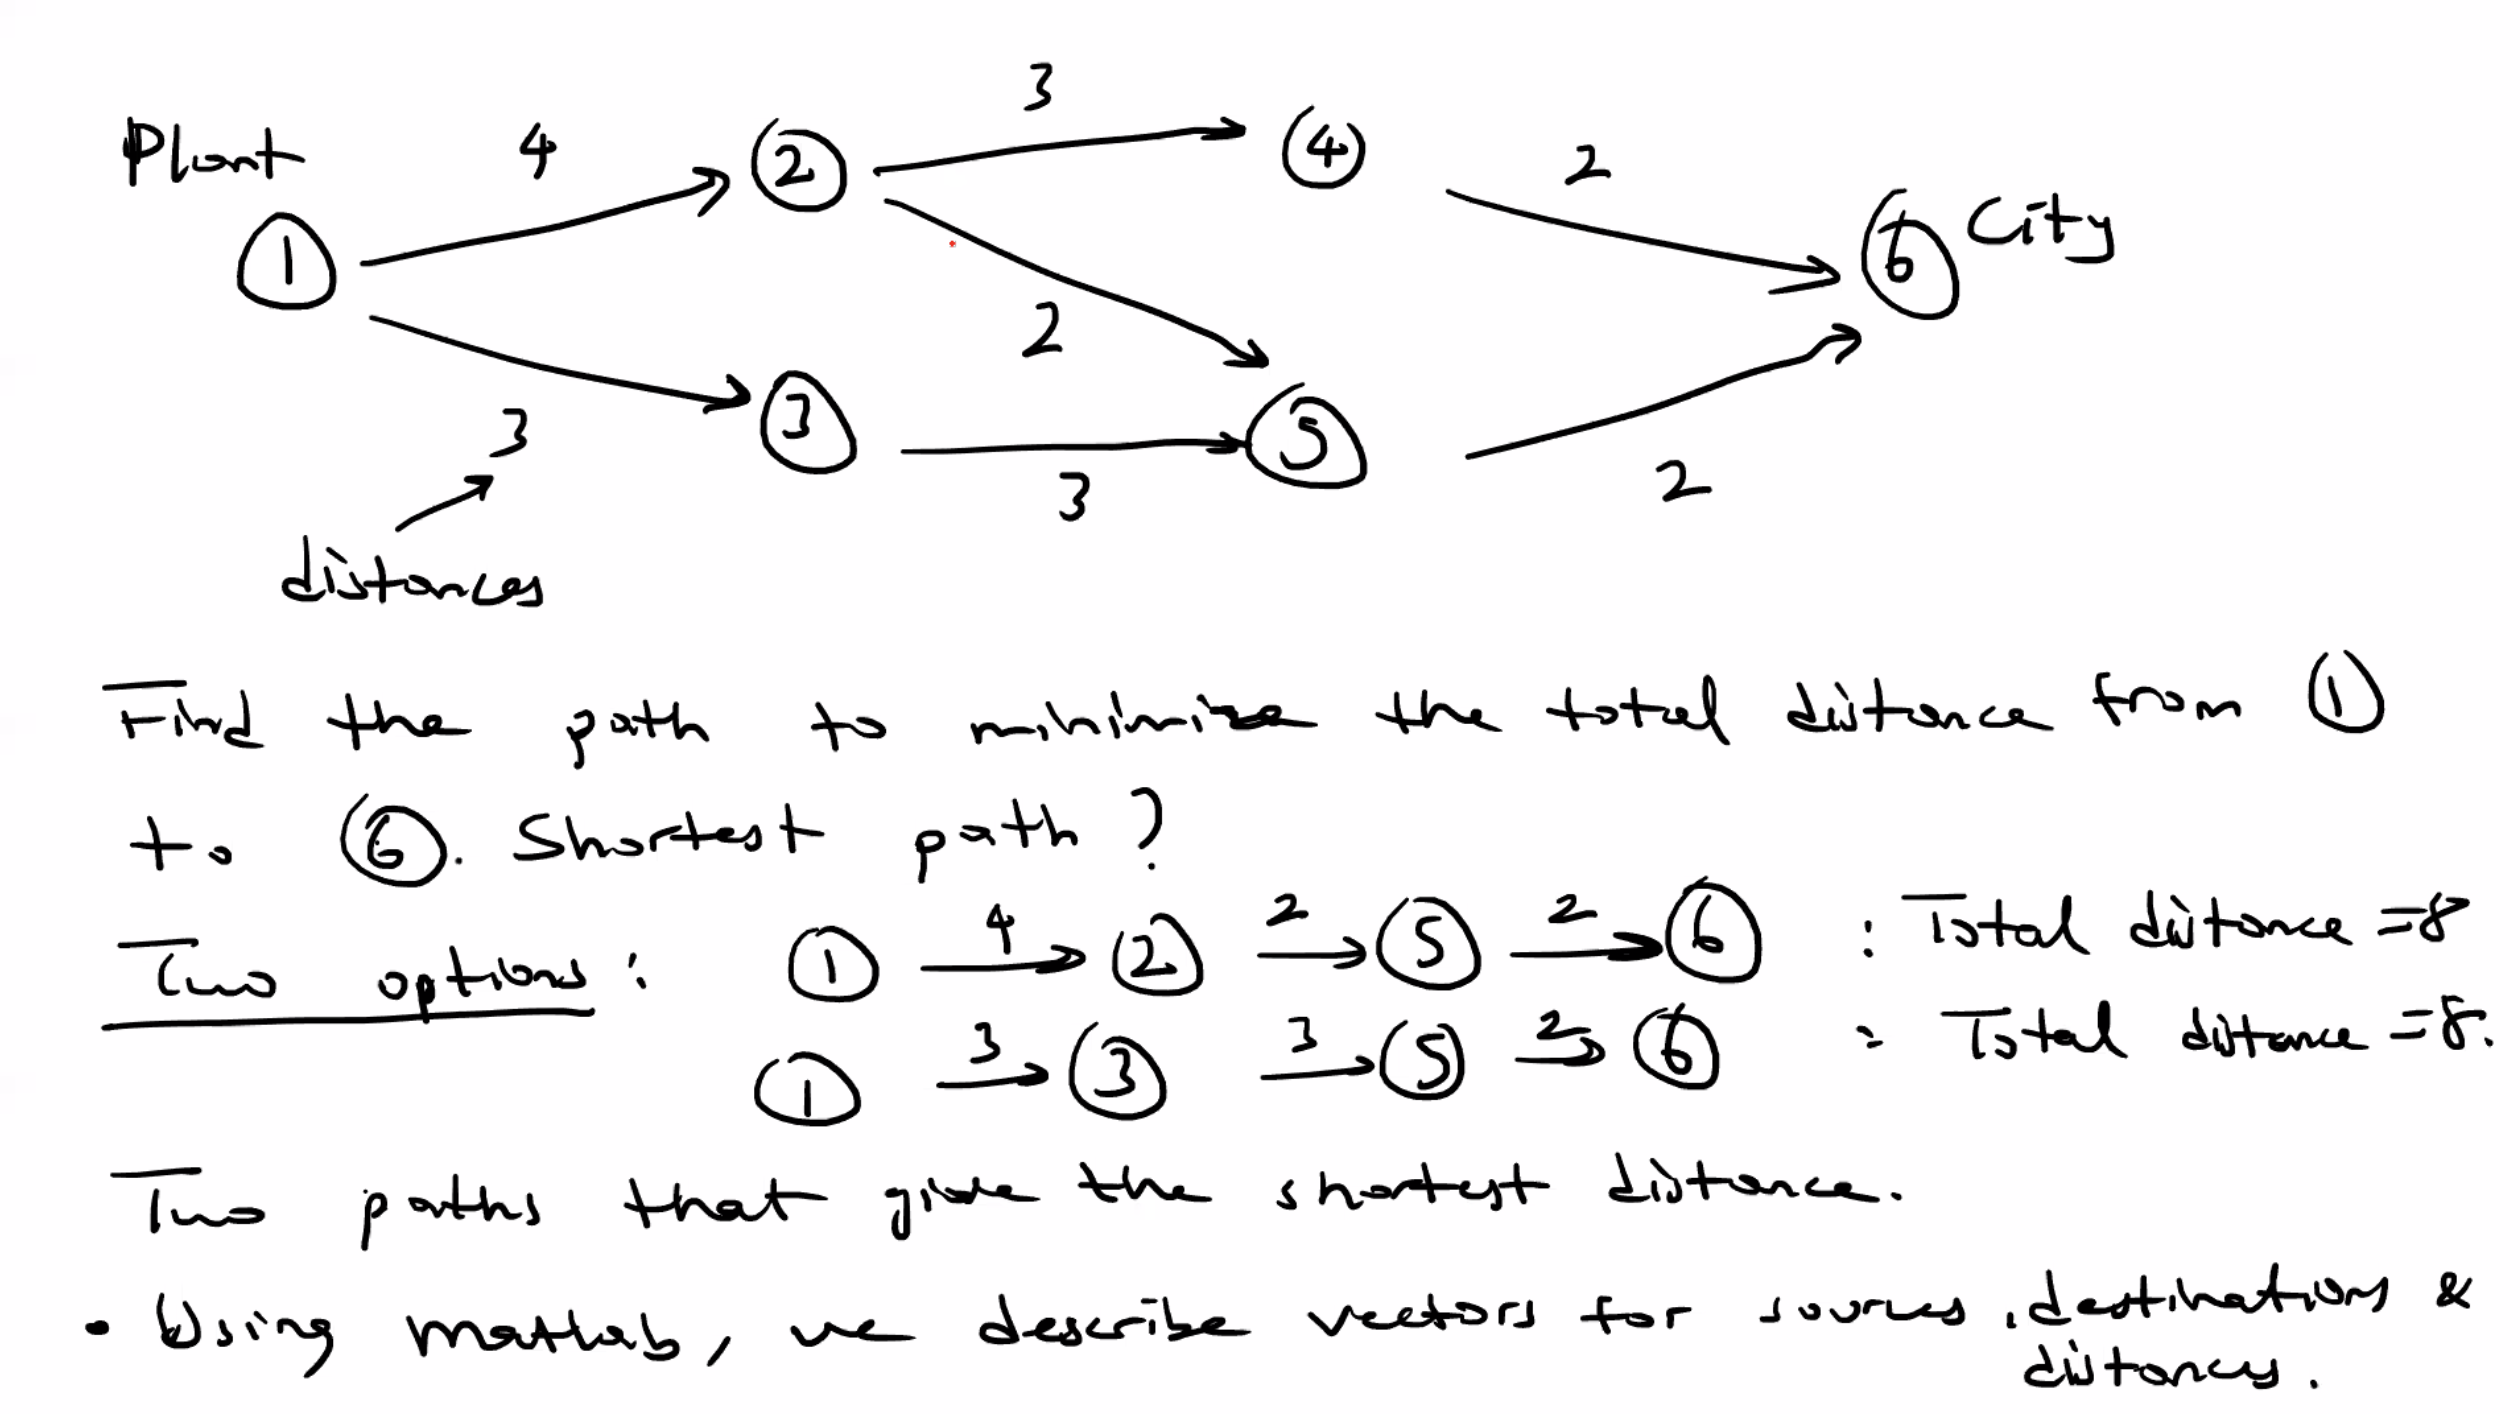 3
Plant 4 2 4 2
1 6 City
2
3 3 5 2
3
distances
Find the path to minimize the total distance from 1
to 6. Shortest path?
Two options: 1 4 2 2 5 2 6 : Total distance = 8
1 3 3 3 5 2 6 : Total distance = 8.
Two paths that give the shortest distance.
• Using Matlab, we describe vectors for sources, destinations &
distances.